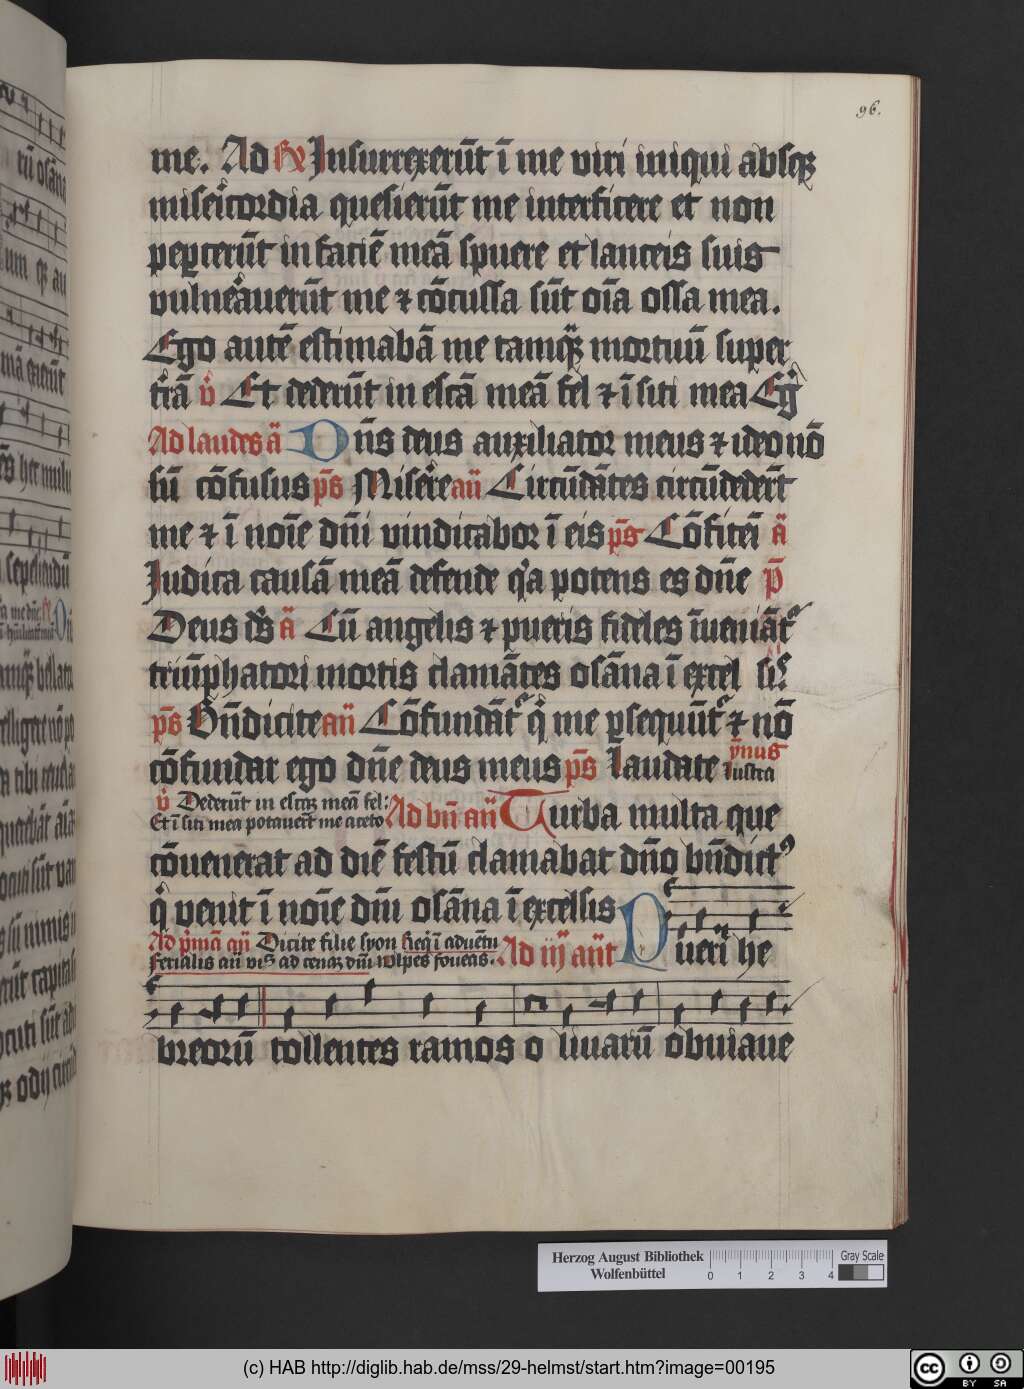 96.
me. Ad R Insurrexerūt ī me viri iniqui absqꝫ
miseicordia quesierūt me interficere et non
pepercerūt in faciē meā spuere et lanceis suis
vulneauerūt me ⁊ cōcussa sūt oīa ossa mea.
Ego autē estimabā me tamqꝫ mortuū super
t̄rā v̊ Et dederūt in escā meā fel ⁊ ī siti mea Eg̊
Ad laudes ā Dn̄s deus auxiliator meus ⁊ ideo nō
sū cōfusus ps̄ Misere an̄ Circūdātes circūdederūt
me ⁊ ī noīe dn̄i vindicabor ī eis ps̄ Cōfitei ā
Iudica causā meā defende q̊a potens es dn̄e p̄
Deus ds̄ ā Cū angelis ⁊ pueris fideles īueniāt᷑
triūphatori mortis clamātes osāna ī excel sis
ps̄ Bn̄dicite an̄ Cōfundāt᷑ q̊ me ꝑsequūt᷑ ⁊ nō
cōfundar ego dn̄e deus meus ps̄ Laudate ymnus
lustra
v̊ Dederūt in escaꝫ meā fel:
Et ī siti mea potauerūt me aceto Ad bn̄ an̄ Turba multa que
cōuenerat ad diē festū clamabat dn̄o bn̄dictꝰ
q̊ venit ī noīe dn̄i osāna ī excelsis
Ad p̊mā an̄ Dicite filie syon ī aduētu
ferialis an̄ ad cenaꝫ dn̄i Wlpes foueas. Ad iij an̄t Pueri he
breorū tollentes ramos o liuarū obuiaue
Herzog August Bibliothek
Wolfenbüttel
0 1 2 3 4
Gray Scale
(c) HAB http://diglib.hab.de/mss/29-helmst/start.htm?image=00195
cc BY SA